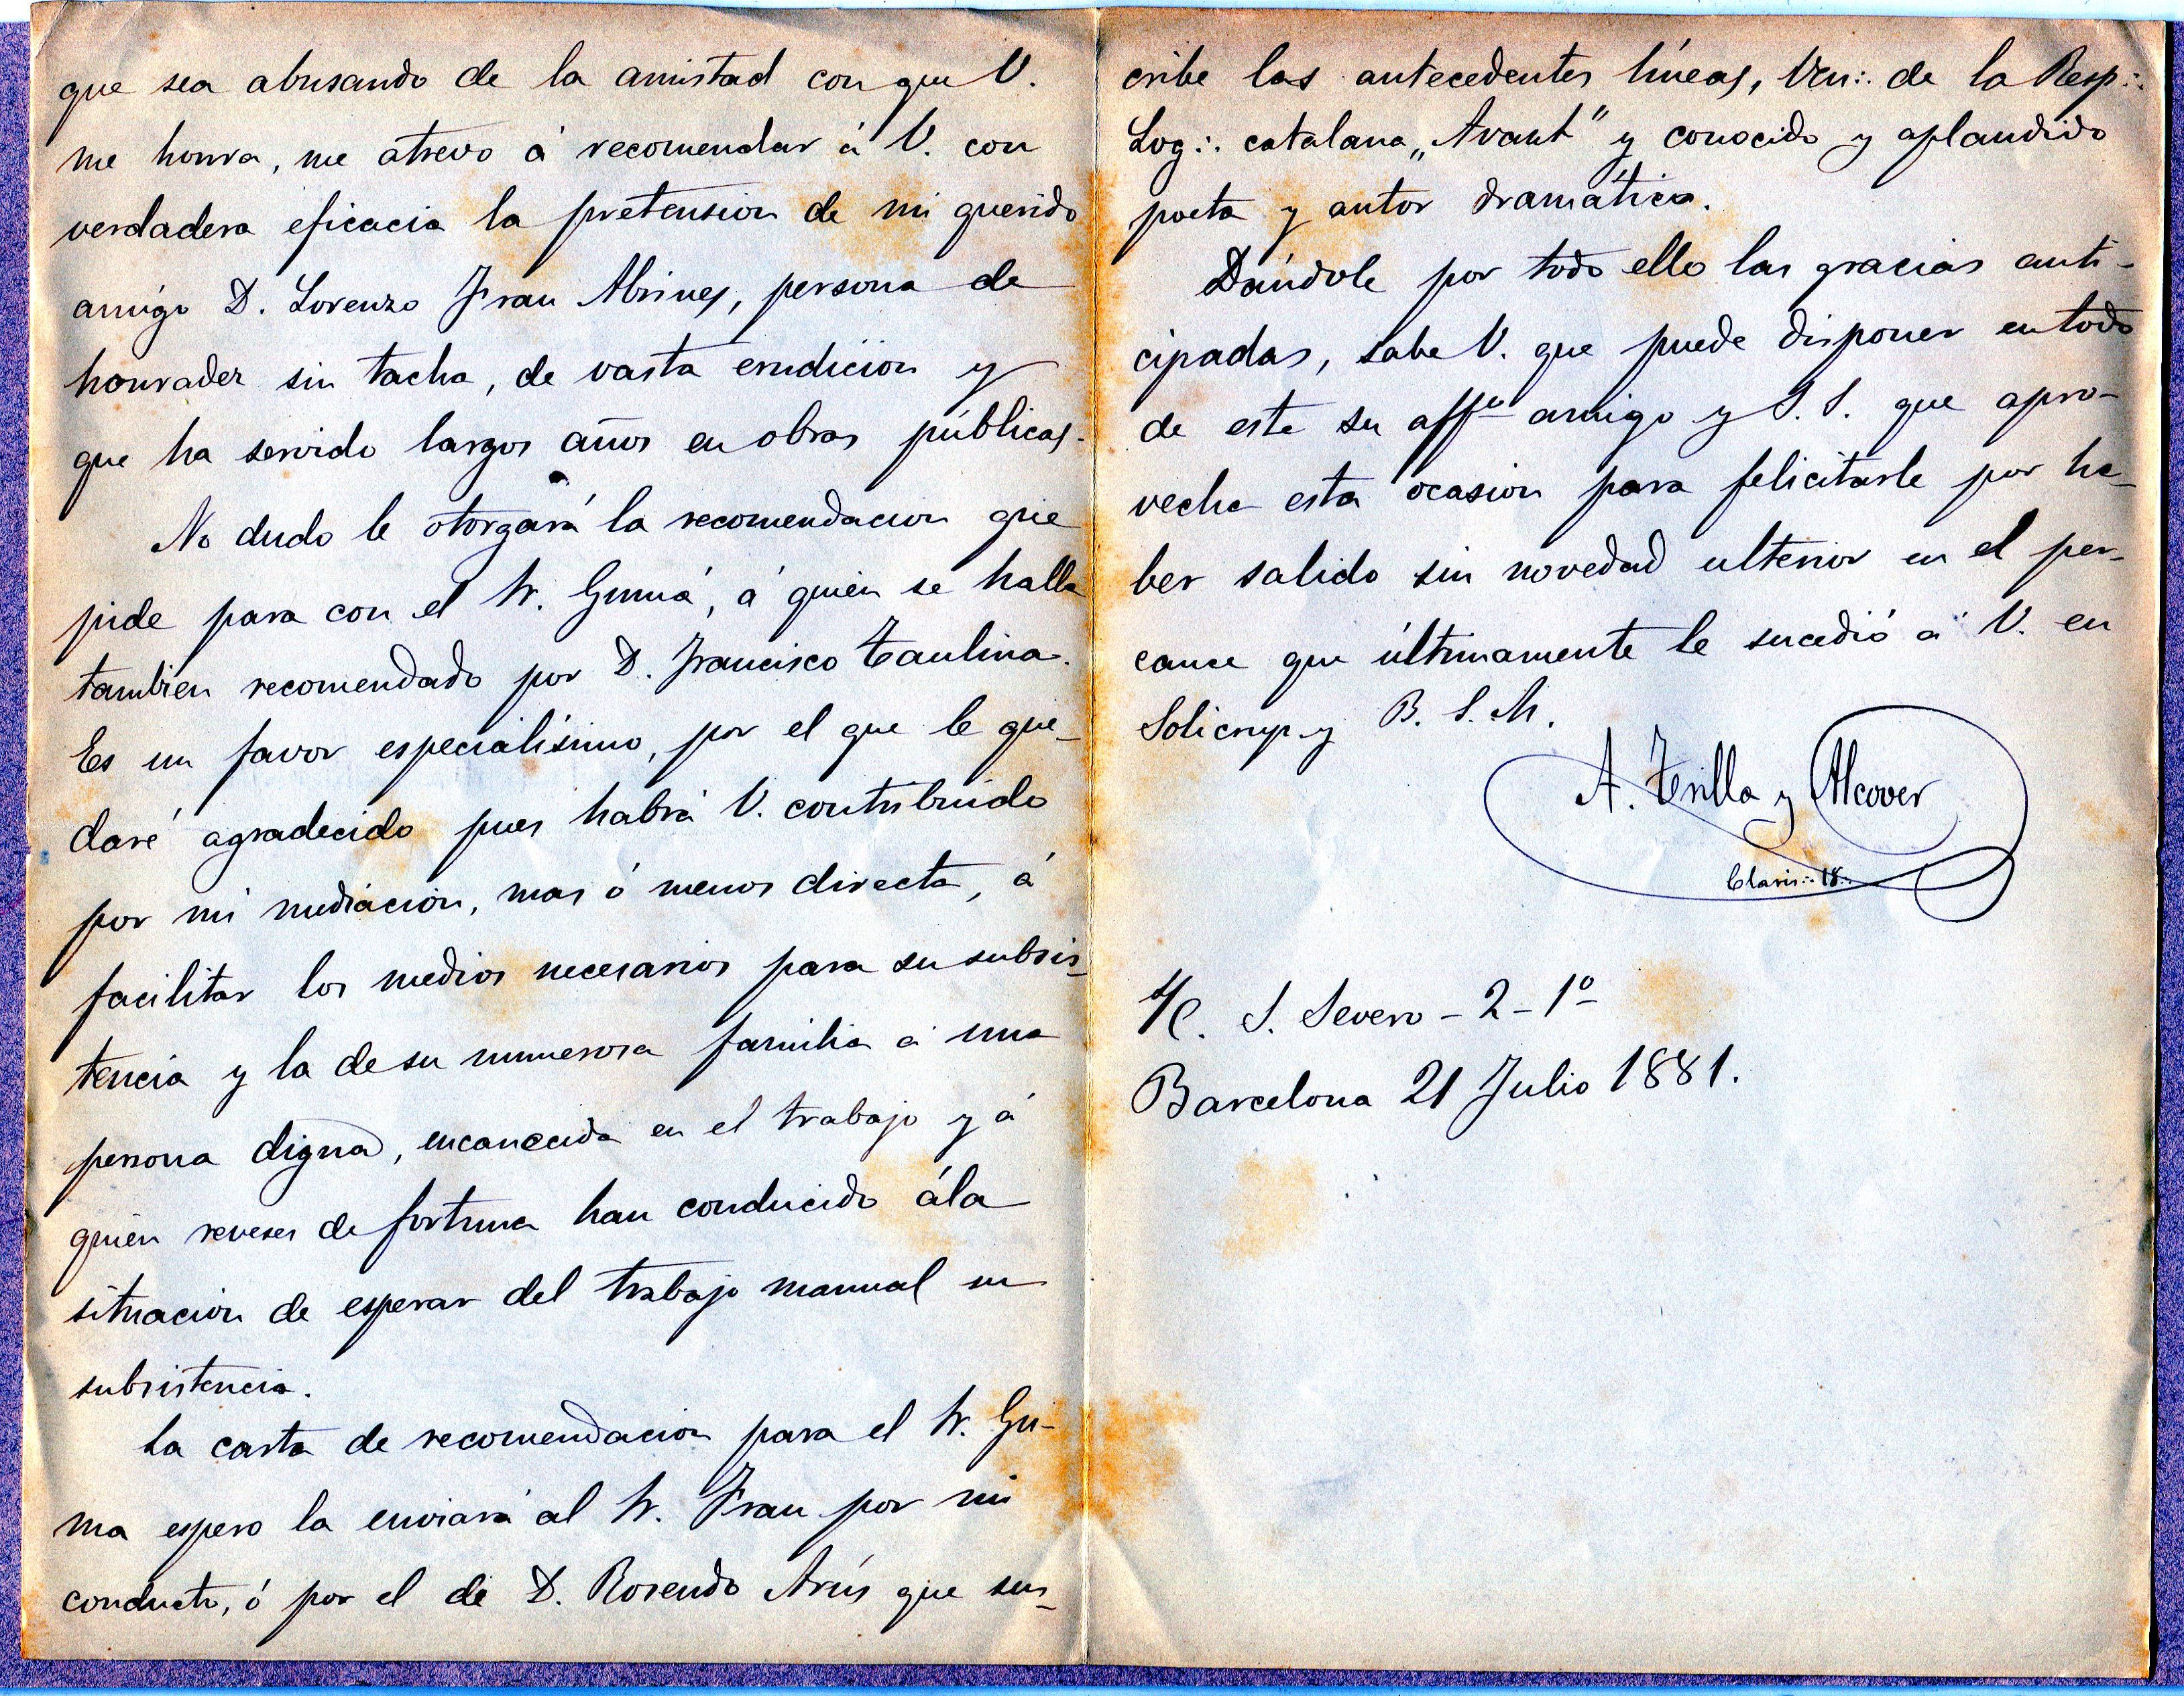 que sea abusando de la amistad con que V.
me honra, me atrevo á recomendar á V. con
verdadera eficacia la pretension de mi querido
amigo D. Lorenzo Frau Abrines, persona de
honradez sin tacha, de vasta erudicion y
que ha servido largos años en obras públicas.
No dudo le otorgará la recomendacion que
pide para con el Sr. Gumá, á quien se halla
tambien recomendado por D. Francisco Taulina.
Es un favor especialísimo, por el que le que-
daré agradecido pues habrá V. contribuido
por mi mediacion, mas ó menos directa, á
facilitar los medios necesarios para su subsis-
tencia y la de su numerosa familia á una
persona digna, encanecida en el trabajo y á
quien reveses de fortuna han conducido á la
situacion de esperar del trabajo manual su
subsistencia.
La carta de recomendacion para el Sr. Gu-
ma espero la enviará al Sr. Frau por mi
conducto, ó por el de D. Rosendo Arús que sus-
cribe las antecedentes líneas, Ven∴ de la Resp∴
Log∴ catalana „Avant" y conocido y aplaudido
poeta y autor dramático.
Dándole por todo ello las gracias anti-
cipadas, sabe V. que puede disponer en todo
de este su affmo amigo y S. S. que apro-
vecha esta ocasion para felicitarle por ha-
ber salido sin novedad ulterior en el per-
cance que últimamente le sucedió á V. en
Solicrup y B. S. M.
A. Trilla y Alcover
Claris∴ 18∴
S/C. S. Severo - 2 - 1º
Barcelona 21 Julio 1881.